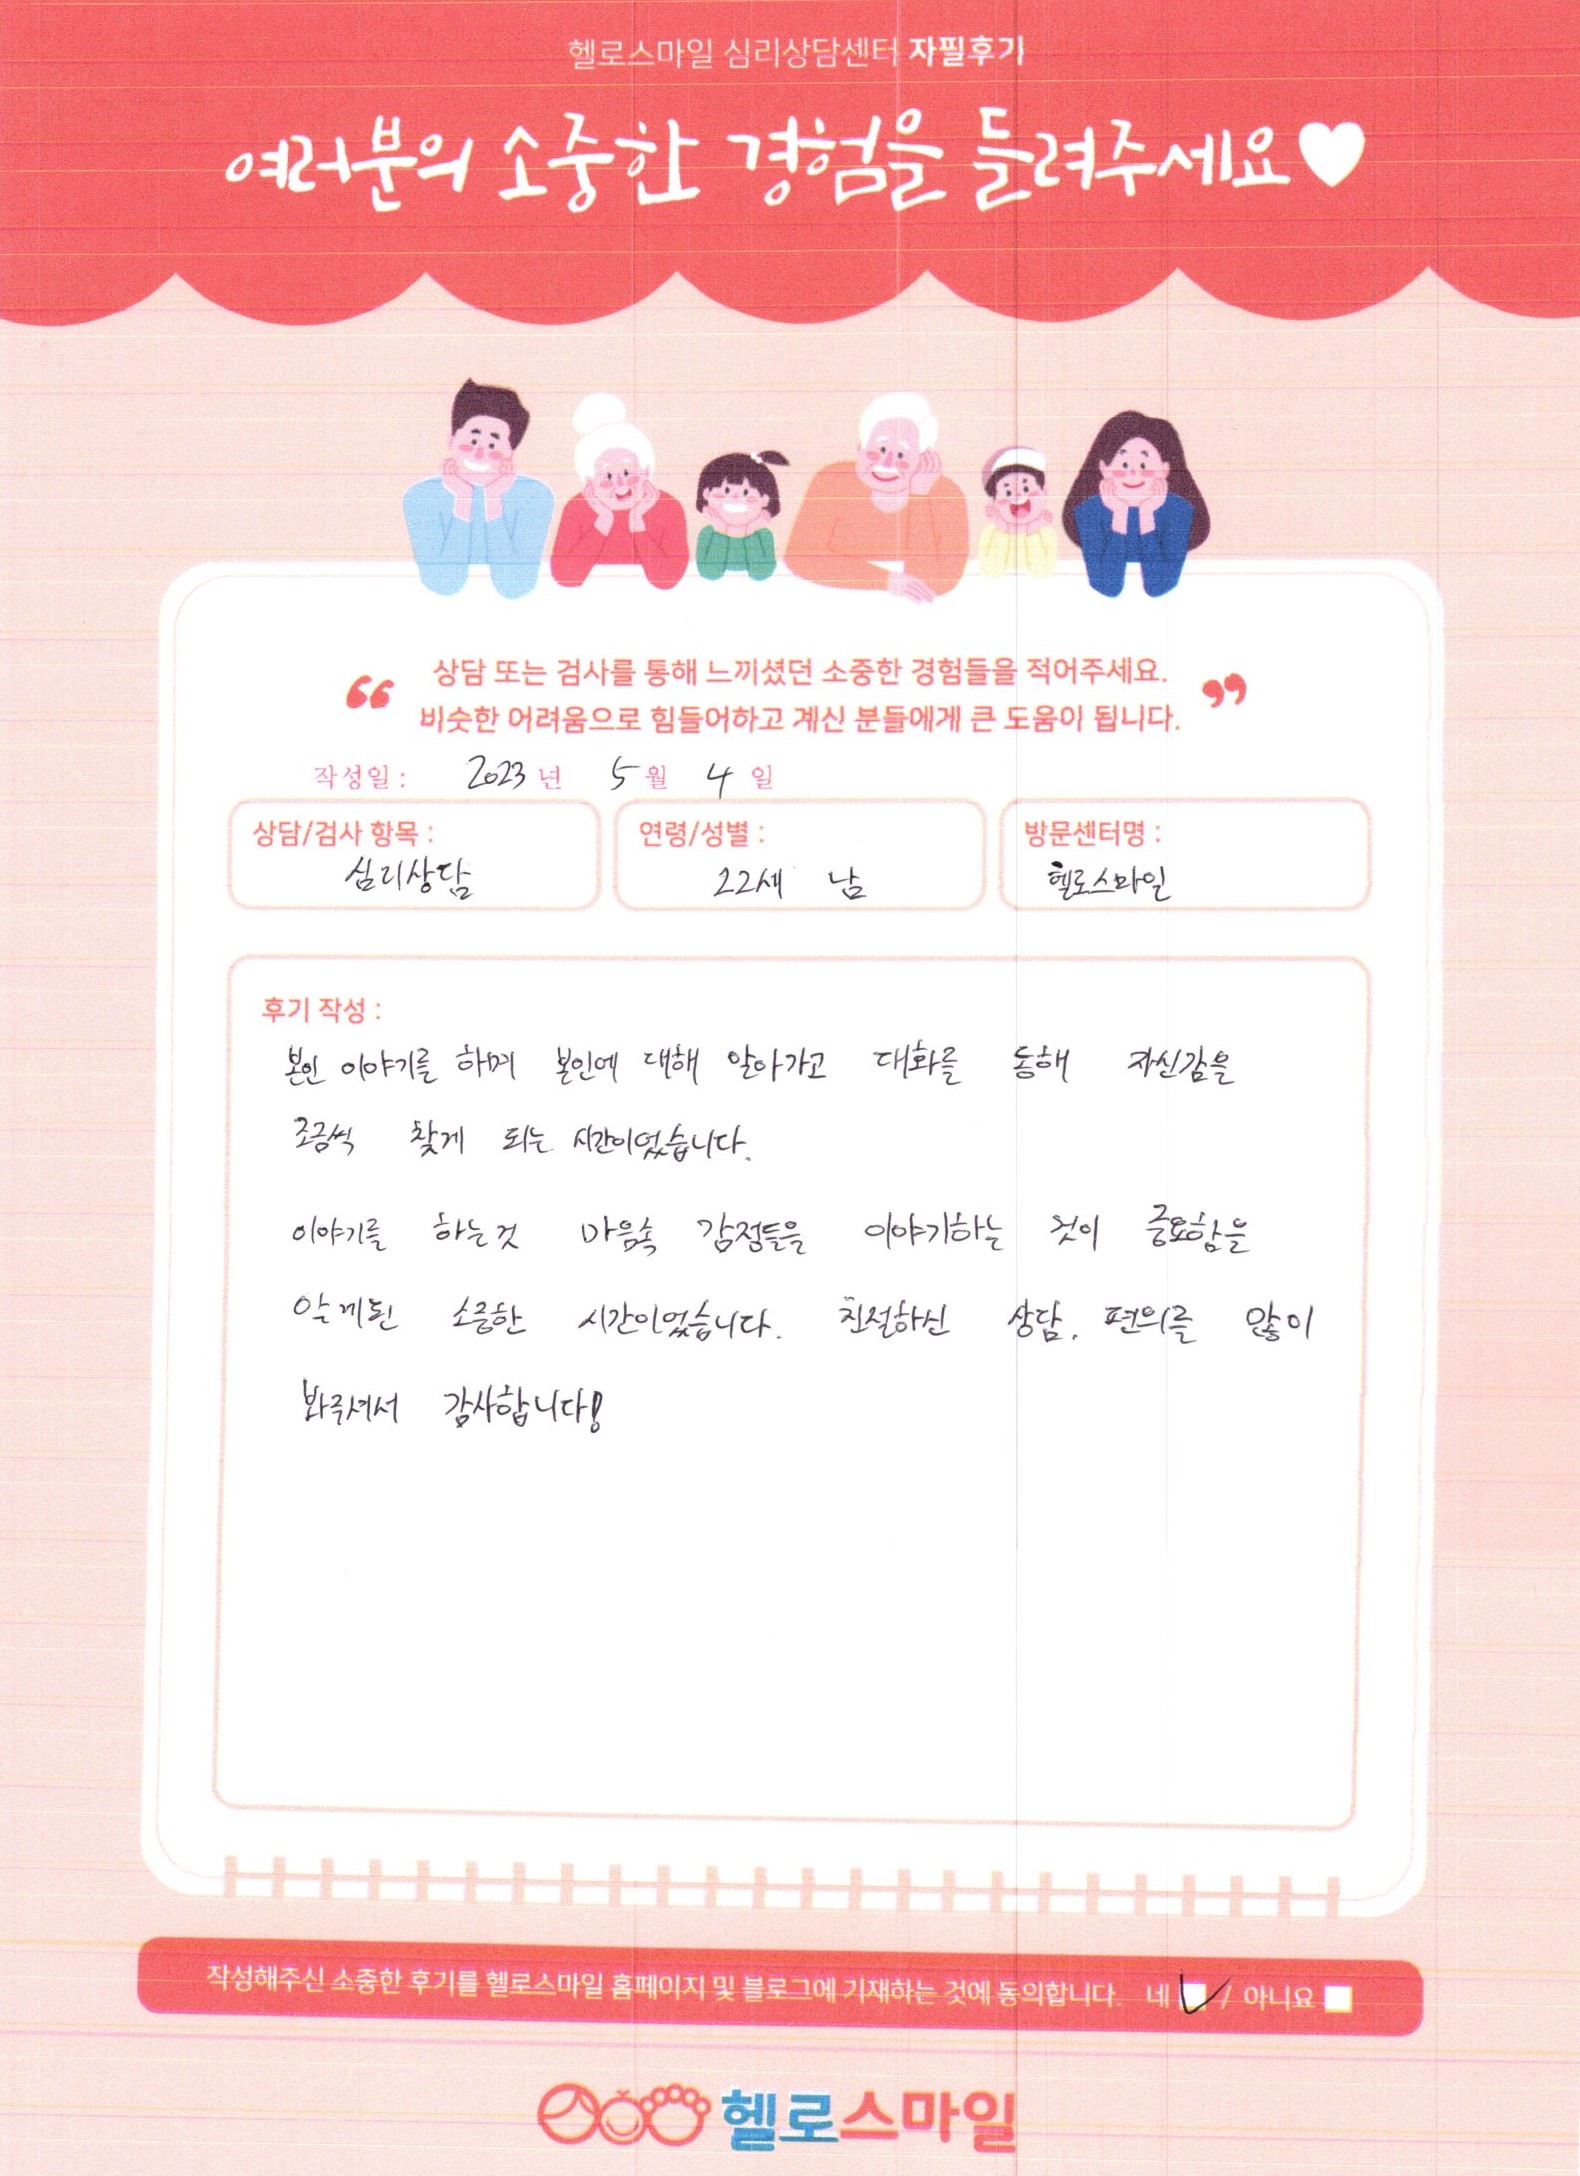 헬로스마일 심리상담센터 자필후기
여러분의 소중한 경험을 들려주세요
상담 또는 검사를 통해 느끼셨던 소중한 경험들을 적어주세요.
비슷한 어려움으로 힘들어하고 계신 분들에게 큰 도움이 됩니다.
작성일: 2023년 5월 4일
상담/검사 항목 : 연령/성별 : 방문센터명 :
심리상담 22세 남 헬로스마일
후기 작성 :
본인 이야기를 하며 본인에 대해 알아가고 대화를 통해 자신감을
조금씩 찾게 되는 시간이었습니다.
이야기를 하는것 마음속 감정들을 이야기하는 것이 중요함을
알게된 소중한 시간이었습니다. 친절하신 상담, 편의를 많이
봐주셔서 감사합니다!
작성해주신 소중한 후기를 헬로스마일 홈페이지 및 블로그에 기재하는 것에 동의합니다. 네 / 아니요
헬로스마일